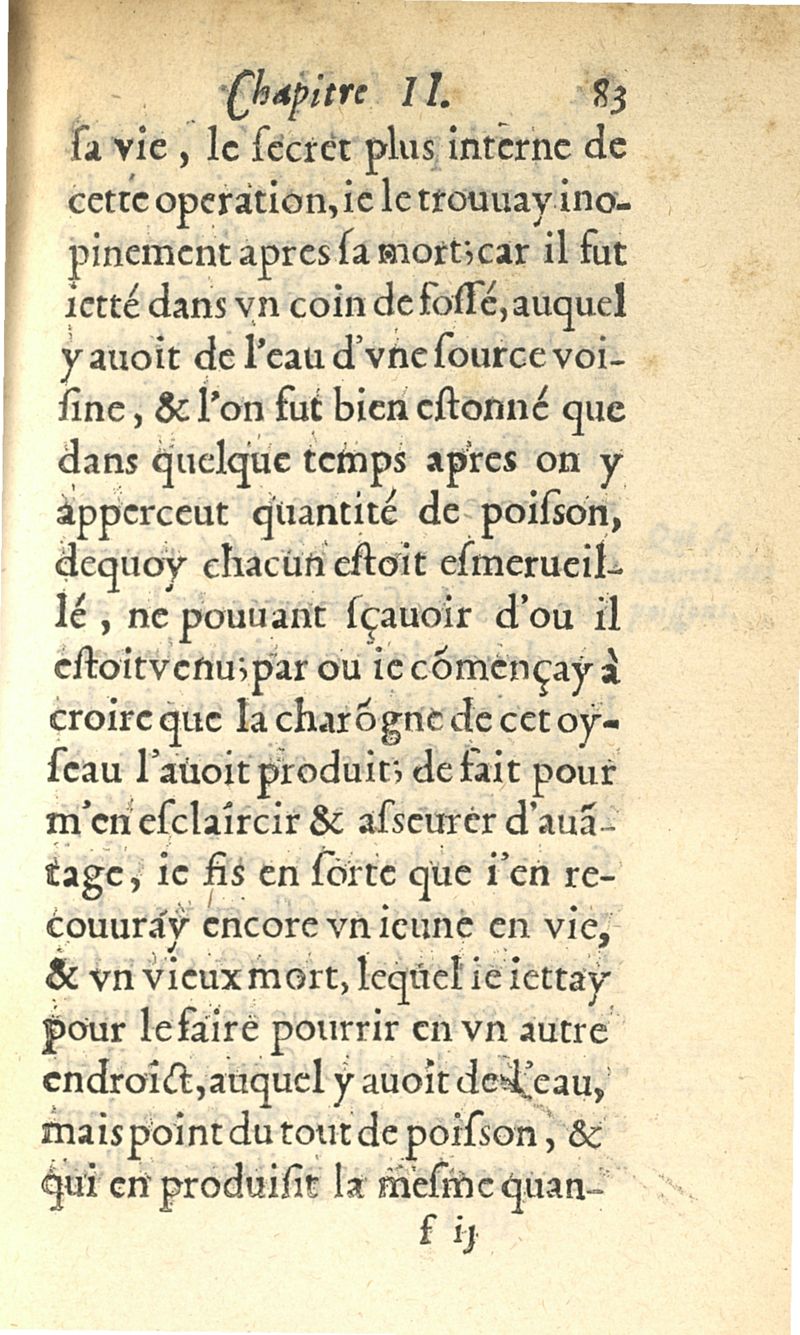 Chapitre II. 83
ſa vie, le ſecret plus interne de
cette operation, ie le trouuay ino-
pinement apres ſa mort; car il fut
ietté dans vn coin de foſſé, auquel
y auoit de l'eau d'vne ſource voi-
ſine, & l'on fut bien eſtonné que
dans quelque temps apres on y
apperceut quantité de poiſſon,
dequoy chacun eſtoit eſmerueil-
lé, ne pouuant ſçauoir d'ou il
eſtoit venu; par ou ie cõmençay à
croire que la charõgne de cet oy-
ſeau l'auoit produit; de fait pour
m'en eſclaircir & aſseurer d'auã-
tage, ie fis en ſorte que i'en re-
couuray encore vn ieune en vie,
& vn vieux mort, lequel ie iettay
pour le faire pourrir en vn autre
endroict, auquel y auoit de l'eau,
mais point du tout de poiſſon, &
qui en produiſit la meſme quan-
f ij